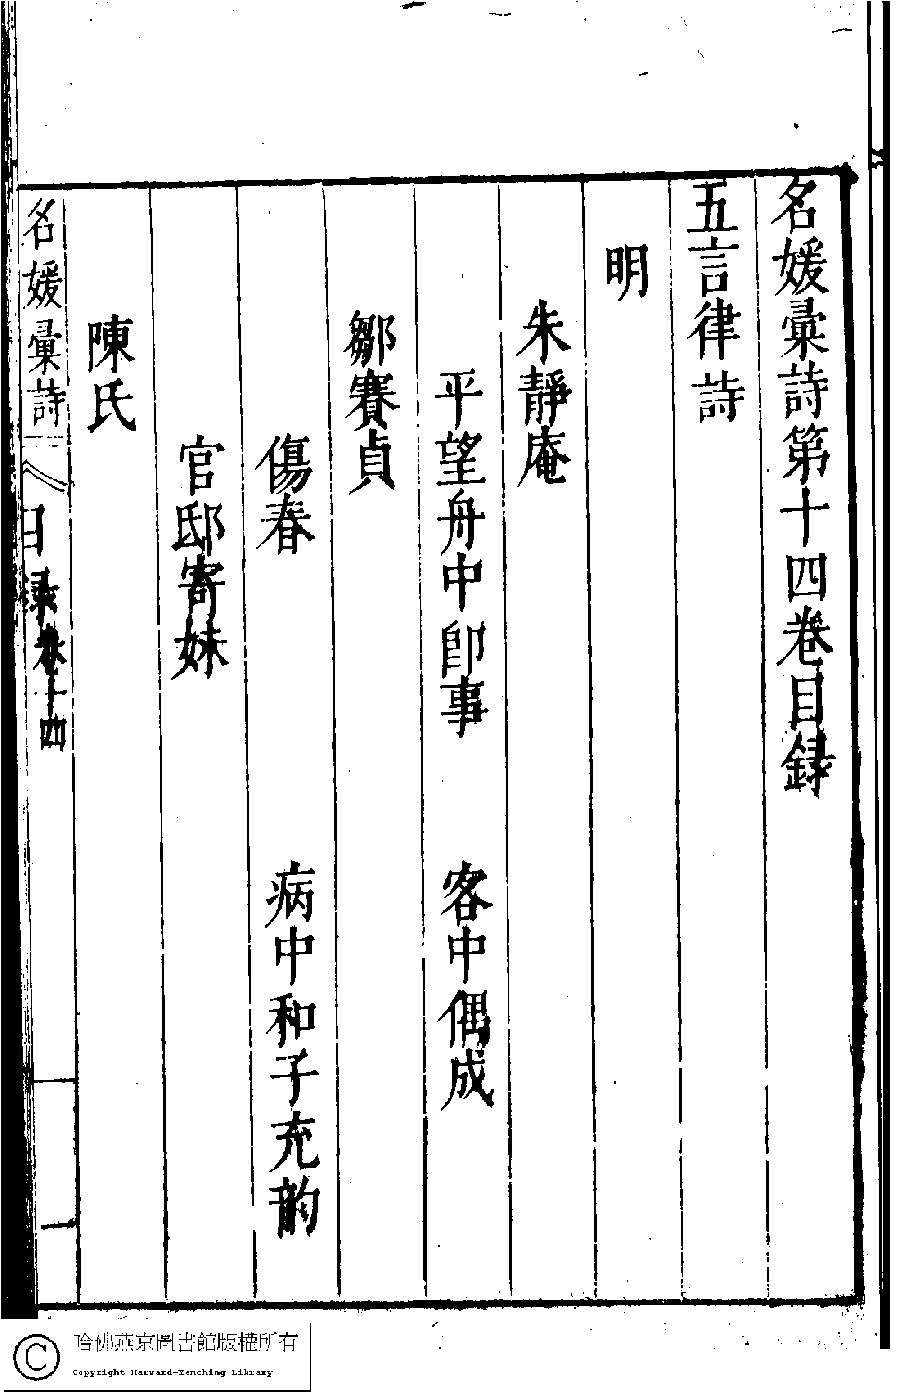 名媛彙詩第十四卷目録
五言律詩
明
朱靜庵
平望舟中即事　客中偶成
鄒賽貞
傷春　病中和子充韵
官邸寄妹
陳氏
名媛彙詩　目録卷十四　一
哈佛燕京圖書館版權所有
Copyright Harvard-Yenching Library